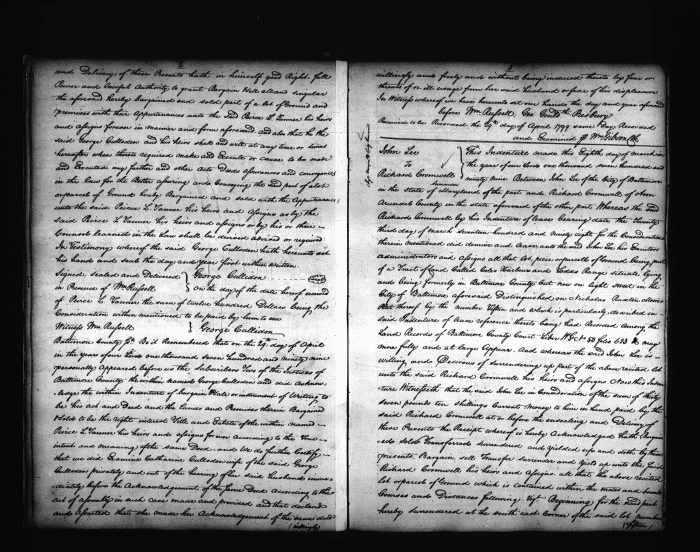 and Delivery of these Presents hath in himself good Right full
Power and Lawful Authority to grant Bargain Sell and
the aforesaid hereby bargained and sold part of a lot of Ground and
premises with their Appurtenances unto the said Peirce L Tanner his heirs
and assigns forever in manner and form aforesaid, and also that he the
said George Cullidon and his heirs shall and will at any time or times
hereafter when thereto required make and Execute or cause to be made
and Executed any further and other acts Deeds assurances and conveyances
in the law for the Better assuring and Conveying the said part of a lot
or parcel of Ground hereby Bargained and sold with the Appurtenances
unto the said Peirce L Tanner his heirs and assigns as by the
said Peirce L Tanner his heirs and assigns or by his or their
Counsel learned in the Law shall be devised advised or required
In Testimony whereof the said George Cullidon hath hereunto set
his hand and seal the day and year first within written
Signed, sealed and Delivered George Cullidon
in Presence of Wm Russell on the day of the date hereof received
of Peirce L Tanner the sum of twelve hundred Dollars being the
Consideration within mentioned to be paid by him to me
Witness Wm Russell George Cullidon
Baltimore County Be it Remembered that on the 29th day of April
in the year of our Lord one thousand seven hundred and ninety nine
personally Appeared before us the Subscribers Two of the Justices of
Baltimore County the within named George Cullidon and did Acknow
ledge the within Indenture of bargain Sale or instrument of Writing to
be his Act and Deed and the Lands and Premises therein Bargained
& Sold to be the Right interest Title and Estate of the within named
Peirce L Tanner his heirs and assigns forever according to the True
intent and meaning of the same Deed and We do further Certify
that we did Examine Catharine Cullidon wife of the said George
Cullidon privately and out of the hearing of her said Husband
before the Acknowledgement of the same Deed according to the
act of assembly in such case made and provided and that she declared
and asserted that she made her Acknowledgement of the same
willingly and freely and without being induced thereto by fear or
threats of or ill usage from her said husband or fear of his displeasure
In Witness whereof we have hereunto set our hands the day and year aforesaid
before Wm Russell, Geo Presbury
Received to be Recorded the day of April 1799 same Day Recorded
and Examined Wm Gibson Clk
John Lee This Indenture made this Eighth day of March in
To the year of our Lord one thousand seven hundred and
Richard Cromwell ninety nine Between John Lee of the City of Baltimore
in the state of Maryland of the one part and Richard Cromwell of Ann
Arundel County in the state aforesaid of the other part Whereas the said
Richard Cromwell by his Indenture of Lease bearing date the Twenty
third day of March seventeen hundred and ninety eight for the Consideration
therein mentioned did demise and Lease unto the said John Lee his Executors
administrators and assigns all that lot piece or parcel of Ground being part
of a Tract of Land Called Coles Harbour and Todds Range situate lying
and being formerly in Baltimore County but now on Light street in the
City of Baltimore aforesaid Distinguished on
Plat thereof by the number fifteen and which is particularly described in
said Indenture of Lease reference thereto being had Recorded among the
Land Records of Baltimore County Court Liber WG No 53 folio 653 may
more fully and at large Appear And whereas the said John Lee is
willing and Desirous of surrendering up part of the above recited lot
unto the said Richard Cromwell his heirs and assigns Now this Inden
ture Witnesseth that the said John Lee in Consideration of the sum of thirty
seven pounds ten shillings Current Money to him in hand paid by the
said Richard Cromwell at or before the ensealing and Delivery of
these Presents the Receipt whereof is hereby Acknowledged Hath Bargain
ed sold Transferred surrendered and yielded up and doth by these
presents Bargain, sell Transfer Surrender and Yield up unto the said
Richard Cromwell his heirs and assigns all that the above recited
lot or parcel of Ground which is contained within the metes and bounds
Courses and Distances following Vizt Beginning for the said part
hereby surrendered at the south east Corner of the said lot number
(fifteen)